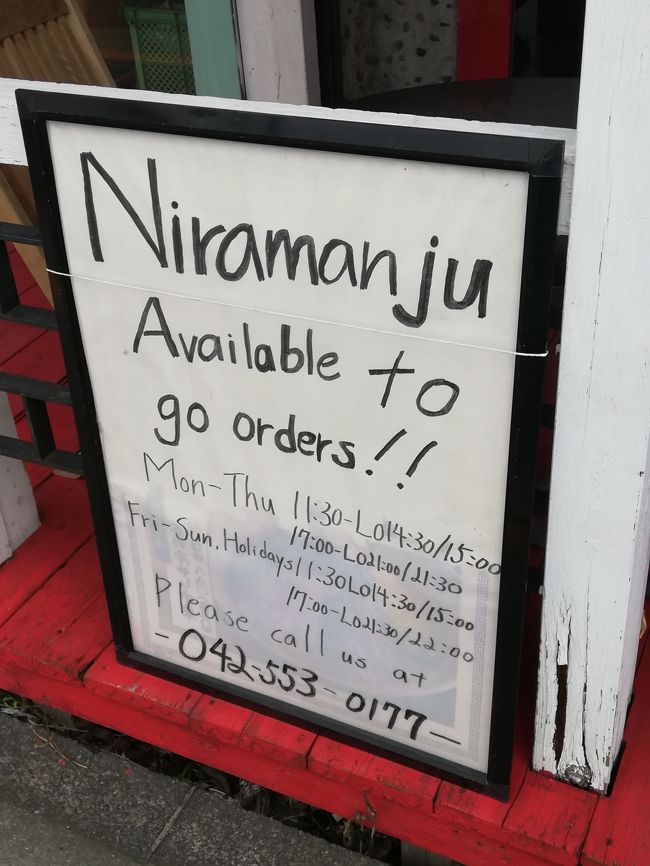 Niramanju
Available to
go orders!!
Mon-Thu 11:30-LO14:30/15:00
17:00-LO21:00/21:30
Fri-Sun. Holidays 11:30LO14:30/15:00
17:00-LO21:30/22:00
Please call us at
-042-553-0177-